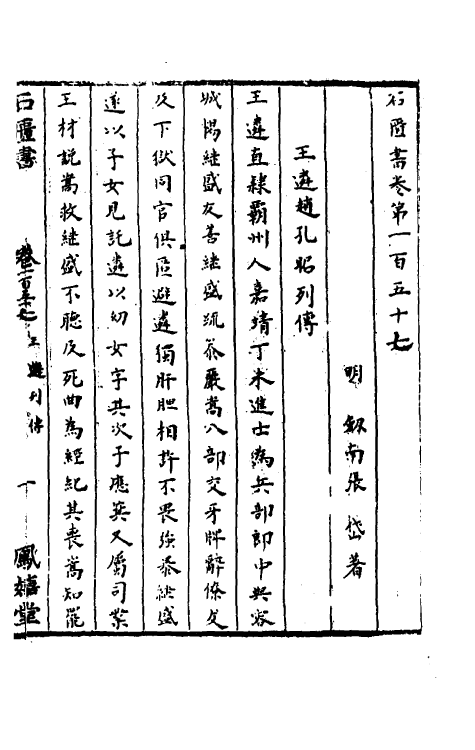 石匱書卷第一百五十七
明 劔南張 岱著
王遴趙孔昭列傳
王遴直隸霸州人嘉靖丁未進士為兵部郎中與容
城楊繼盛友善繼盛疏叅嚴嵩八部交牙脺辭僚友
及下獄同官俱匿避遴獨肝胆相許不畏強暴継盛
遂以子女見託遴以幼女字其次子應箕又屬司業
王材説嵩救継盛不聽及死曲為經紀其喪嵩知罷
石匱書
卷一百五十七 王遴列傳
十
鳳嬉堂